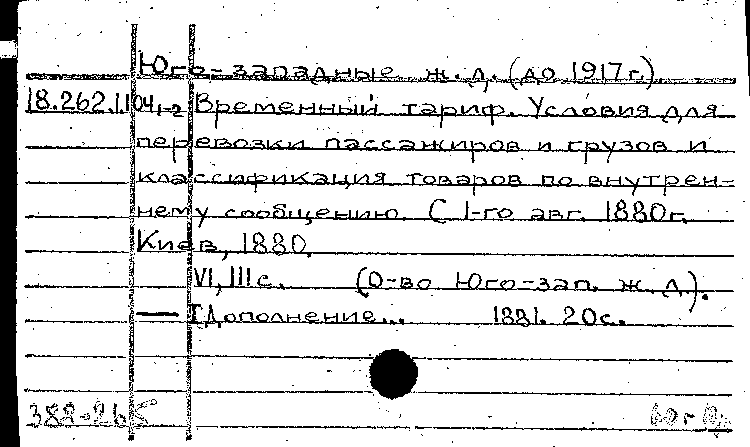 Юго-западные ж. д. (до 1917 г.)
18.262.1.104,1-2 Временный тариф. Условия для
перевозки пассажиров и грузов и
классификация товаров по внутрен-
нему сообщению. С 1-го авг. 1880г.
Киев, 1880.
VI, 111 с. (О-во Юго-зап. ж. д.).
— I Дополнение... 1881. 20с.
382-265